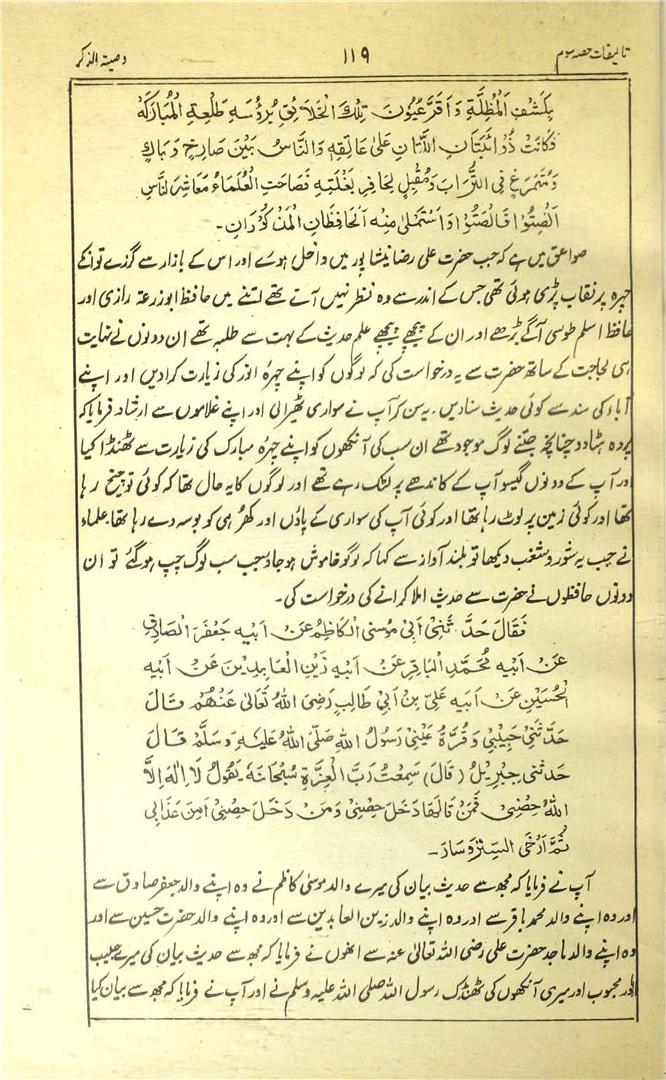 تالیفات حصہ سوم ۱۱۹ وصیۃ الذکر
بِكَشْفِ الْمُظِلَّةِ وَاَقَرَّ عُيُوْنَ تِلْكَ الْخَلَائِقِ بِرُؤْسِهِ طَلْعَتِهِ الْمُبَارَكَةِ
فَكَانَتْ ذُوَائبَتَانِ اللَّتَانِ عَلىٰ عَاتِقِهِ وَالنَّاسُ بَيْنَ صَارِخٍ وَبَاكٍ
وَمُتَمَرِّغٍ فِي التُّرَابِ وَمُقَبِّلٍ لِحَافِرِ بَغْلَتِهِ فَصَاحَتِ الْعُلَمَاءُ مَعَاشِرَ النَّاسِ
اَنْصِتُوْا فَانْصَتُوْا وَاسْتَمْلىٰ مِنْهُ الْحَافِظَانِ الْمَذْكُوْرَانِ۔
صواعق میں ہے کہ جب حضرت علی رضا نیشاپور میں داخل ہوئے اور اس کے بازار سے گزرے تو انکے
چہرہ پر نقاب پڑی ہوئی تھی جس کے اندر سے وہ نظر نہیں آتے تھے اتنے میں حافظ ابوزرعۃ رازی اور
حافظ اسلم طوسی آگے بڑھے اور ان کے پیچھے پیچھے علم حدیث کے بہت سے طلبہ تھے ان دونوں نے نہایت
ہی لجاجت کے ساتھ حضرت سے یہ درخواست کی کہ لوگوں کو اپنے چہرۂ انور کی زیارت کرا دیں اور اپنے
آباء کی سند سے کوئی حدیث سنا دیں۔ یہ سن کر آپ نے سواری ٹھیرائی اور اپنے غلاموں سے ارشاد فرمایا کہ
پردہ ہٹا دو چنانچہ جتنے لوگ موجود تھے ان سب کی آنکھوں کو اپنے چہرۂ مبارک کی زیارت سے ٹھنڈا کیا
اور آپ کے دونوں گیسو آپ کے کاندھے پر لٹک رہے تھے اور لوگوں کا یہ حال تھا کہ کوئی تو چیخ رہا
تھا اور کوئی زمین پر لوٹ رہا تھا اور کوئی آپ کی سواری کے پاؤں اور کھر ہی کو بوسہ دے رہا تھا۔ علماء
نے جب یہ شور و شغب دیکھا تو بلند آواز سے کہا کہ لوگو خاموش ہو جاؤ جب سب لوگ چپ ہو گئے تو ان
دونوں حافظوں نے حضرت سے حدیث املا کرانے کی درخواست کی۔
فَقَالَ حَدَّ ثَنِيْ اَبِيْ مُوْسٰى الْكَاظِمُ عَنْ اَبِيْهِ جَعْفَرَ الصَّادِقِ
عَنْ اَبِيْهِ مُحَمَّدِ الْبَاقِرِ عَنْ اَبِيْهِ زَيْنِ الْعَابِدِيْنَ عَنْ اَبِيْهِ
الْحُسَيْنِ عَنْ اَبِيْهِ عَلِيِّ بْنِ اَبِيْ طَالِبٍ رَضِىَ اللهُ تَعَالىٰ عَنْهُمْ قَالَ
حَدَّثَنِيْ حَبِيْبِيْ وَقُرَّةُ عَيْنِيْ رَسُوْلُ اللهِ صَلَّى اللهُ عَلَيْهِ وَسَلَّمَ قَالَ
حَدَّثَنِيْ جِبْرِيْلُ (قَالَ) سَمِعْتُ رَبَّ الْعِزَّةِ سُبْحَانَهٗ يَقُوْلُ لَا اِلٰهَ اِلَّا
اللهُ حِصْنِيْ فَمَنْ قَالَهَا دَخَلَ حِصْنِيْ وَمَنْ دَخَلَ حِصْنِيْ اَمِنَ عَذَابِيْ
ثُمَّ اَرْخَى السِّتْرَ وَسَارَ۔
آپ نے فرمایا کہ مجھ سے حدیث بیان کی میرے والد موسیٰ کاظم نے وہ اپنے والد جعفر صادق سے
اور وہ اپنے والد محمد باقر سے اور وہ اپنے والد زین العابدین سے اور وہ اپنے والد حضرت حسین سے اور
وہ اپنے والد ماجد حضرت علی رضی اللہ تعالیٰ عنہ سے انھوں نے فرمایا کہ مجھ سے حدیث بیان کی میرے حبیب
اور محبوب اور میری آنکھوں کی ٹھنڈک رسول اللہ صلی اللہ علیہ وسلم نے اور آپ نے فرمایا کہ مجھ سے بیان کیا